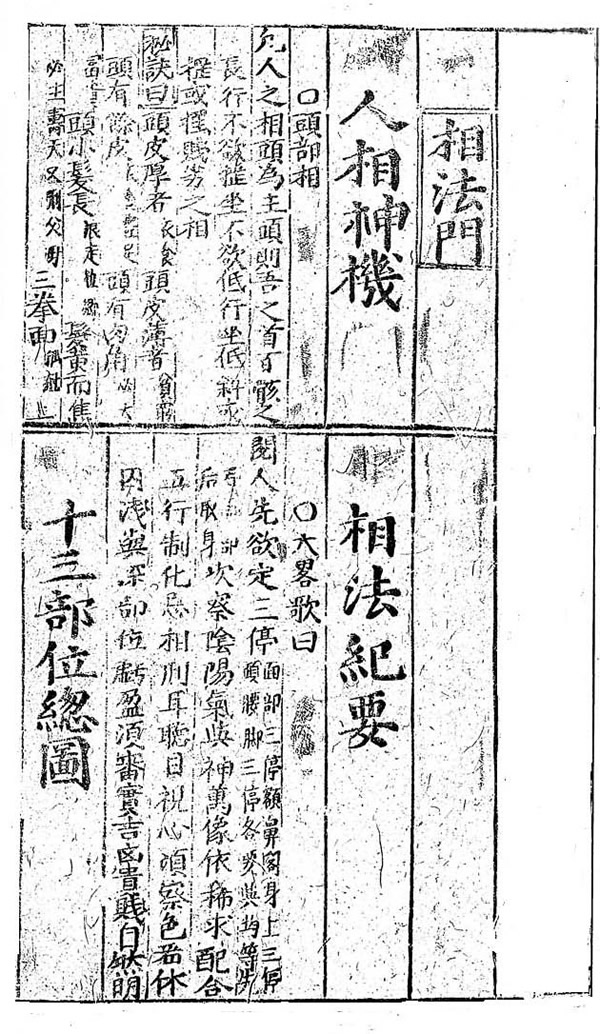 相法門
人相神機
〇頭部相
凡人之相頭為主頭則吾之首百骸之
長行不欲搖坐不欲低行坐低斜或
搖或擺賤劣之相
秘訣曰頭皮厚者衣食頭皮薄者貧窮
頭有餘皮頭有肉角必大
富貴頭小髮長髮黃而焦
必主壽夭又刑父母三拳面
相法紀要
〇大畧歌曰
閱人先欲定三停面部三停額鼻閣身上三停頭腰脚三停各要與均等先
后取身次察陰陽氣與神萬像依稀求配合
五行制化忌相刑耳聽目視心須察色若休
囚淺與深部位虧盈須審實吉凶貴賤自然明
十三部位緫圖